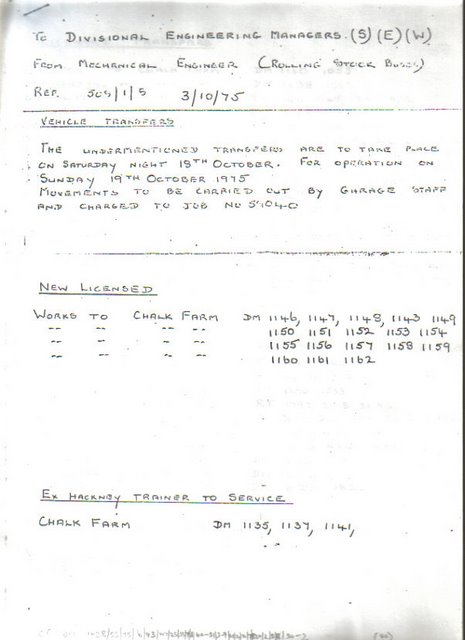 To DIVISIONAL ENGINEERING MANAGERS. (S) (E) (W)
FROM MECHANICAL ENGINEER (ROLLING STOCK BUSES)
REF. 505/1/5 3/10/75
VEHICLE TRANSFERS
THE UNDERMENTIONED TRANSFERS ARE TO TAKE PLACE
ON SATURDAY NIGHT 18TH OCTOBER. FOR OPERATION ON
SUNDAY 19TH OCTOBER 1975
MOVEMENTS TO BE CARRIED OUT BY GARAGE STAFF
AND CHARGED TO JOB NO 59040
NEW LICENSED
WORKS TO CHALK FARM DM 1146, 1147, 1148, 1143 1149
-- -- -- -- 1150 1151 1152 1153 1154
-- -- -- -- 1155 1156 1157 1158 1159
-- -- -- -- 1160 1161 1162
EX HACKNEY TRAINER TO SERVICE
CHALK FARM DM 1135, 1137, 1141,